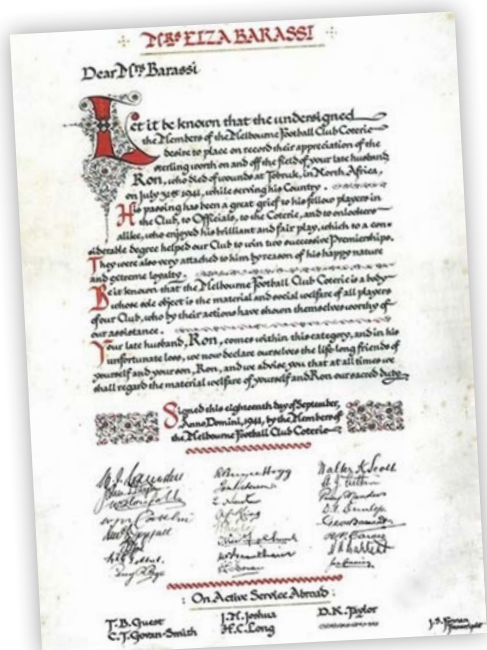 Mrs ELIZA BARASSI
Dear Mrs Barassi
Let it be known that the undersigned
the Members of the Melbourne Football Club Coterie
desire to place on record their appreciation of the
sterling worth on and off the field of your late husband
Ron, who died of wounds at Tobruk, in North Africa,
on July 31st 1941, while serving his Country.
His passing has been a great grief to his fellow players in
the Club, to Officials, to the Coterie, and to onlookers
alike, who enjoyed his brilliant and fair play, which to a con-
siderable degree helped our Club to win two successive Premierships.
They were also very attached to him by reason of his happy nature
and extreme loyalty.
Be it known that the Melbourne Football Club Coterie is a body
whose sole object is the material and social welfare of all players
of our Club, who by their actions have shown themselves worthy of
our assistance.
Your late husband, Ron, comes within this category, and in his
unfortunate loss, we now declare ourselves the life-long friends of
yourself and your son, Ron, and we advise you that at all times we
shall regard the material welfare of yourself and Ron our sacred duty.
Signed this eighteenth day of September,
Anno Domini, 1941, by the Members of
the Melbourne Football Club Coterie
Walter K Scott
On Active Service Abroad:
T. B. Guest J. M. Joshua D. K. Taylor
C. T. Goran-Smith H. C. Long